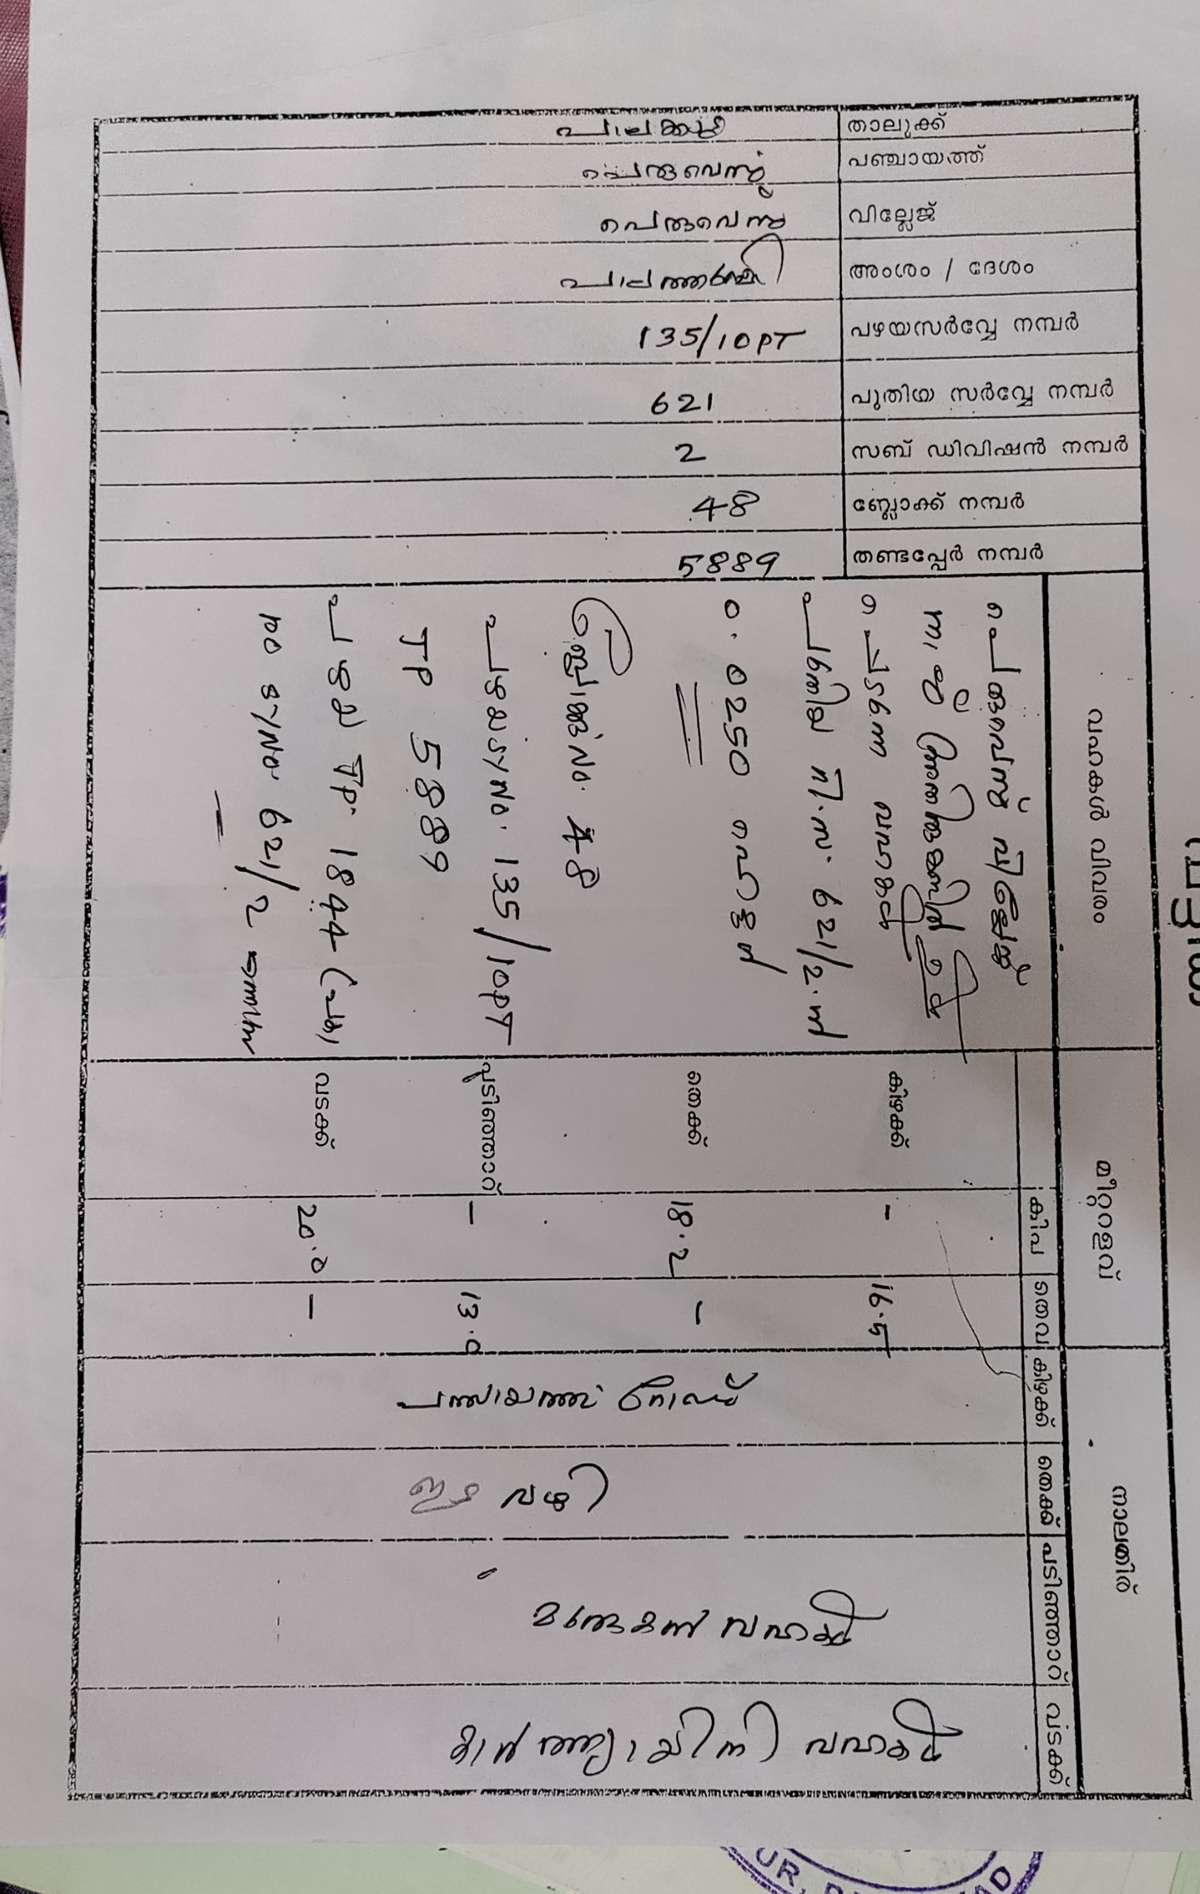 താലൂക്ക് പാലക്കാട്
പഞ്ചായത്ത് പെരുവെമ്പ്
വില്ലേജ് പെരുവെമ്പ
അംശം / ദേശം
പഴയസർവ്വേ നമ്പർ 135/10PT
പുതിയ സർവ്വേ നമ്പർ 621
സബ് ഡിവിഷൻ നമ്പർ 2
ബ്ലോക്ക് നമ്പർ 48
തണ്ടപ്പേർ നമ്പർ 5889
വഹകൾ വിവരം
പെരുവെമ്പ് വില്ലേജ്
പെടുന്ന വഹകൾ
പുതിയ റി.സ. 621/2.ൽ
0.0250 ഹെക്ടർ
ബ്ലോക്ക്നം. 48
പഴയസ.നം. 135/10PT
TP 5889
പഴയ TP. 1844
റീ സ.നം. 621/2
മീറ്ററളവ്
കിപ തെവ
കിഴക്ക് - 16.5
തെക്ക് 18.2 -
പടിഞ്ഞാറ് - 13.0
വടക്ക് 20.0 -
നാലതിർ
കിഴക്ക് പഞ്ചായത്ത് റോഡ്
തെക്ക് ഈ വഴി
പടിഞ്ഞാറ് വഹകൾ
വടക്ക് വഹകൾ